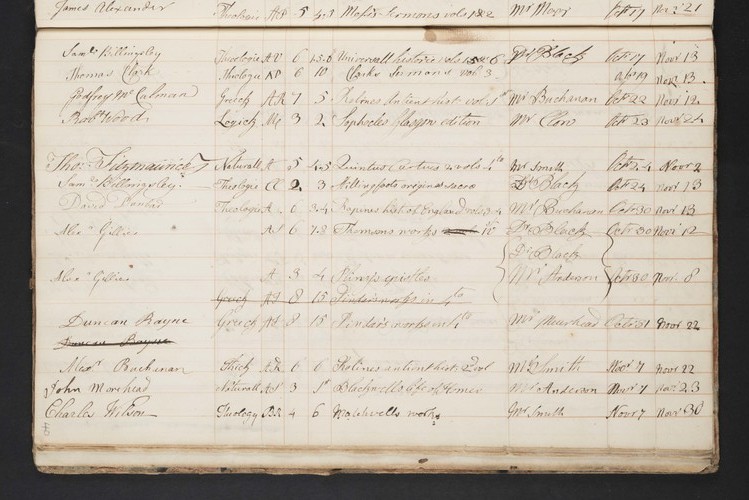 James Alexander Theologie A S 5 4.3 Moss's Sermons vols 1 & 2 Mr Moor Octr 17 Novr 21
Saml Billingsley Theologie A R 6 Universal history vols 6 Dr Black Octr 17 Novr 13
Thomas Clark Theologie A S 6 10 Clarks Sermons vol. 3 Octr 19 Novr 13
Godfrey Mc Culman Greek A R 7 5 Rolines Antient hist. vol 1st Mr Buchanan Octr 22 Novr 12
Robt Wood Logick 3 2 Sophocles Glasgow edition Mr Clow Octr 23 Novr 24
Thos Fitzmaurice Naturall A 5 4.5 Quintus Curtius 2 vols 4to Mr Smith Octr 24 Novr 2
Saml Billingsley. Theologie A 2. 3 Stillingfleets origines sacrae Dr Black Octr 24 Novr 13
David Theologie A 6 3.4 Rapines hist of England vols 3.4 Mr Buchanan Octr 30 Novr 13
Alexr Gillies A S 6 7.8 Thomsons works Dr Black Octr 30 Novr 12
Dr Black
Alexr Gillies A 3 4 Plinys epistles Mr Anderson Octr 30 Novr 8
Greek A S 8 15 Pindars works in 4to
Duncan Rayne Greek A S 8 15 Pindars works in 4to Mr Muirhead Octr 31 Novr 22
Duncan Rayne
Alexr Buchanan A R 6 6 Rolines antient hist: 2d vol Mr Smith Novr 7 Novr 22
John Morehead Naturall A S 3 1st Blackwells life of Homer Mr Anderson Novr 7 Novr 23
Charles Wilson Theology 4 6 works Mr Smith Novr 7 Novr 30